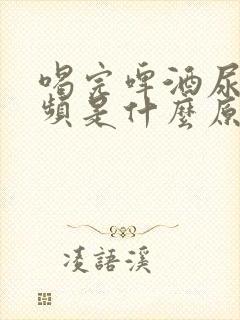 喝完啤酒尿
頻是什麼原
凌語溪